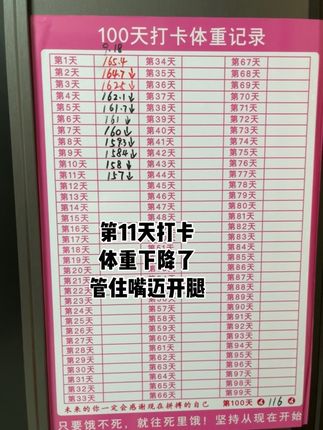 100天打卡体重记录
9.18
第1天 165.4 第34天 第67天
第2天 164.7↓ 第35天 第68天
第3天 162.5↓ 第36天 第69天
第4天 162.1↓ 第37天 第70天
第5天 161.7↓ 第38天 第71天
第6天 161↓ 第39天 第72天
第7天 160↓ 第40天 第73天
第8天 159.3↓ 第41天 第74天
第9天 158.4↓ 第42天 第75天
第10天 158↓ 第43天 第76天
第11天 157↓ 第44天 第77天
第12天 第45天 第78天
第13天 第46天 第79天
第14天 第47天 第80天
第15天 第48天 第81天
第16天 第49天 第82天
第17天 第83天
第18天 第84天
第19天 第85天
第20天 第86天
第21天 第87天
第22天 第88天
第23天 第56天 第89天
第24天 第57天 第90天
第25天 第58天 第91天
第26天 第59天 第92天
第27天 第60天 第93天
第28天 第61天 第94天
第29天 第62天 第95天
第30天 第63天 第96天
第31天 第64天 第97天
第32天 第65天 第98天
第33天 第66天 第99天
第11天打卡
体重下降了
管住嘴迈开腿
未来的你一定会感谢现在拼搏的自己 第100天 116
只要饿不死，就往死里饿！坚持从现在开始